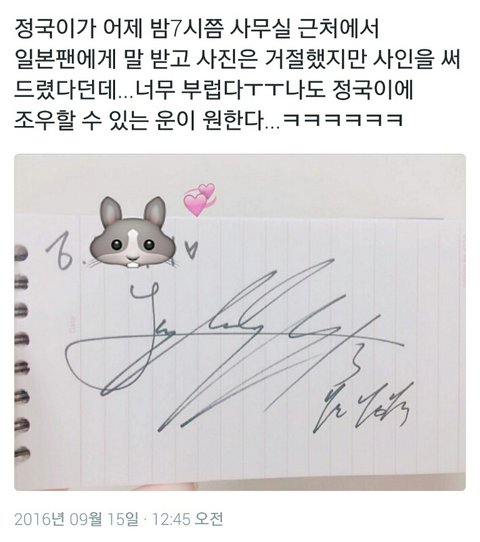 정국이가 어제 밤7시쯤 사무실 근처에서
일본팬에게 말 받고 사진은 거절했지만 사인을 써
드렸다던데...너무 부럽다ㅜㅜ나도 정국이에
조우할 수 있는 운이 원한다...ㅋㅋㅋㅋㅋㅋ
2016년 09월 15일 · 12:45 오전